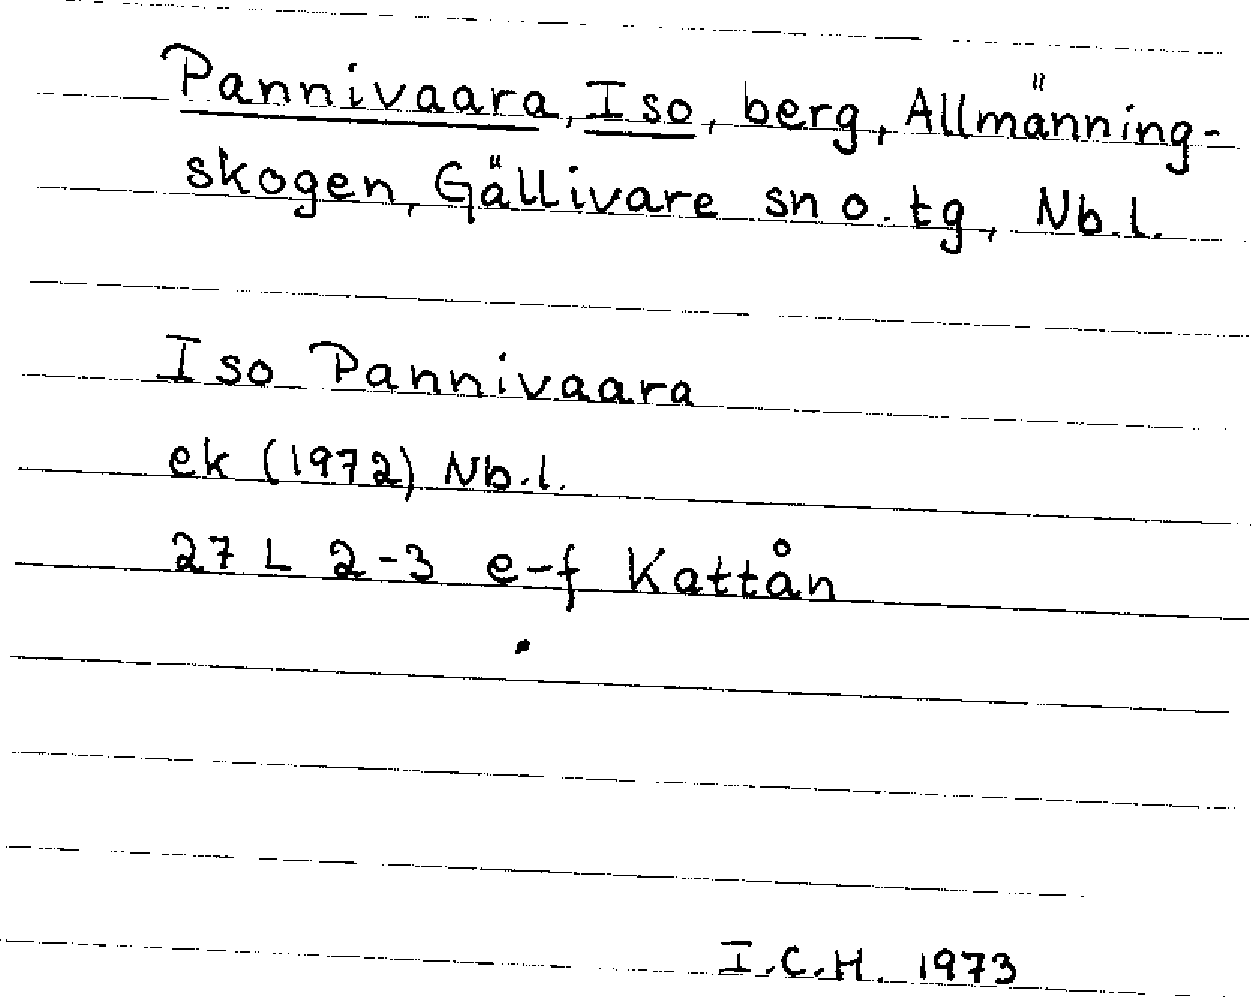 Pannivaara, Iso, berg, Allmänning-
skogen, Gällivare sn o. tg, Nb.l.
Iso Pannivaara
ek (1972) Nb.l.
27 L 2-3 e-f Kattån
I.C.H. 1973